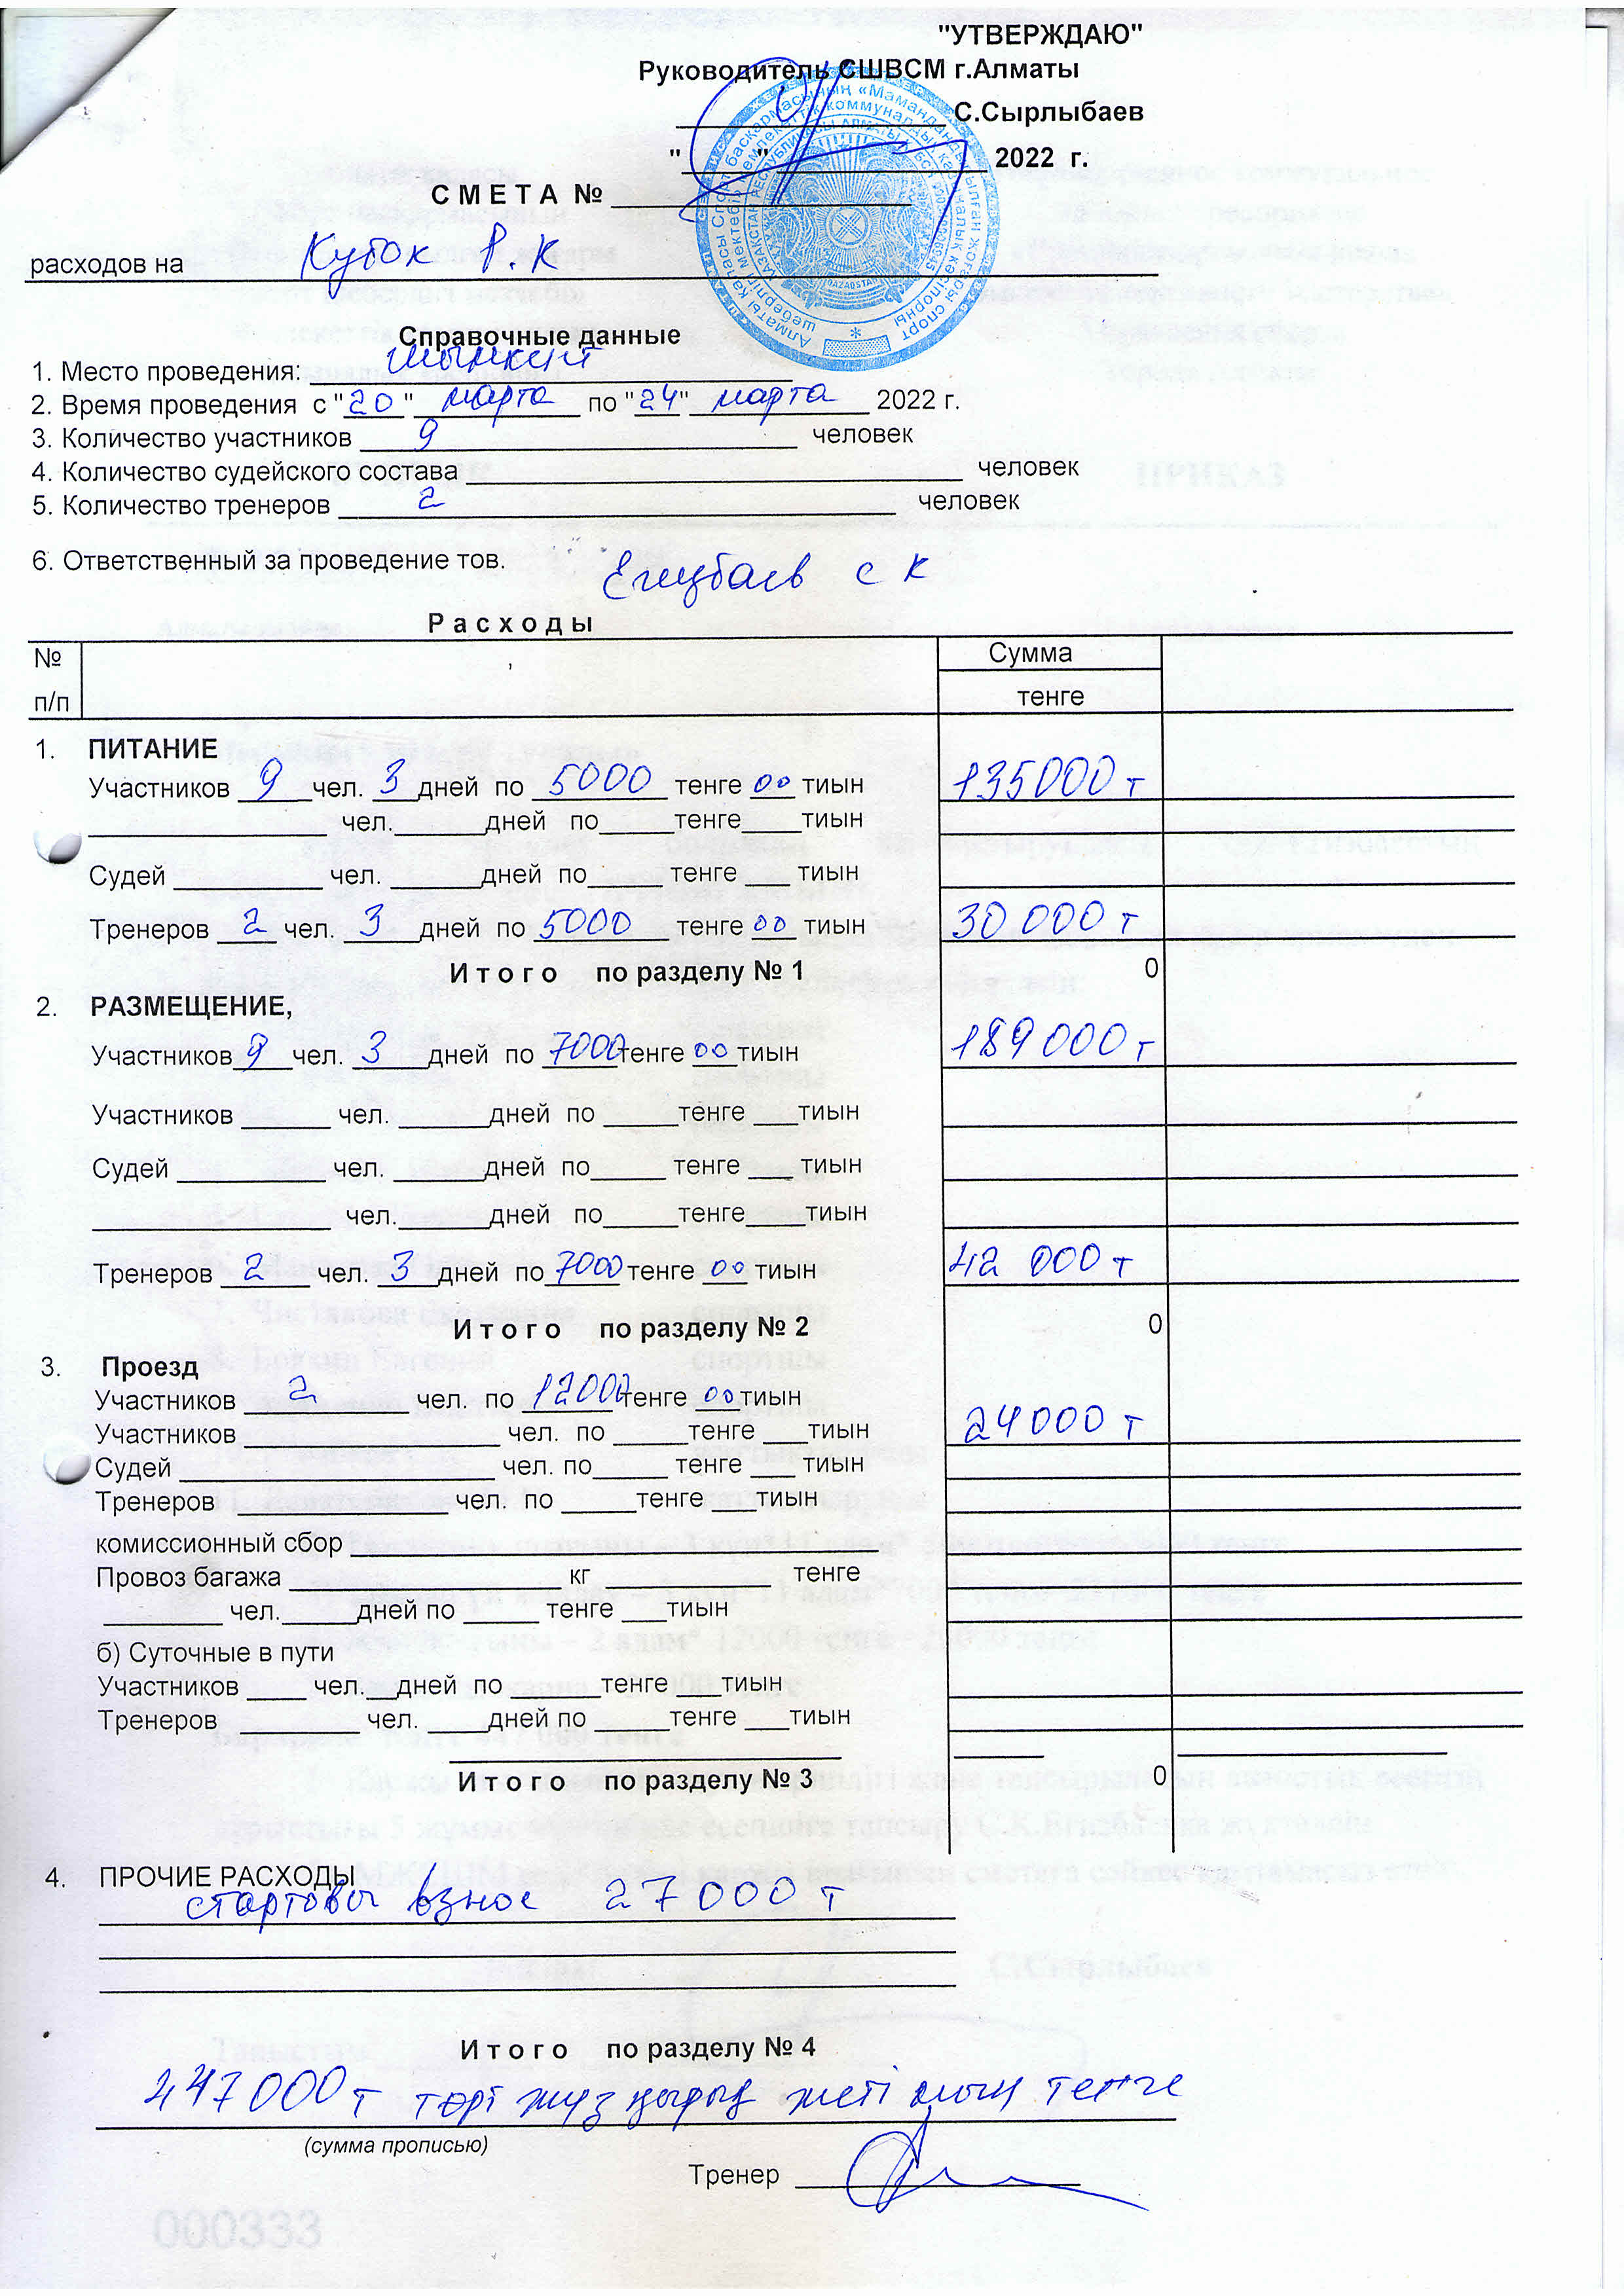 "УТВЕРЖДАЮ"
Руководитель СШВСМ г.Алматы
С.Сырлыбаев
"___"___ 2022 г.
С М Е Т А №
расходов на Кубок Р.К
Справочные данные
1. Место проведения: Шымкент
2. Время проведения с "20" марта по "24" марта 2022 г.
3. Количество участников 9 человек
4. Количество судейского состава человек
5. Количество тренеров 2 человек
6. Ответственный за проведение тов. Егизбаев С К
Р а с х о д ы
№ п/п Сумма
тенге
1. ПИТАНИЕ
Участников 9 чел. 3 дней по 5000 тенге 00 тиын 135000 т
чел. дней по тенге тиын
Судей чел. дней по тенге тиын
Тренеров 2 чел. 3 дней по 5000 тенге 00 тиын 30 000 т
И т о г о по разделу № 1 0
2. РАЗМЕЩЕНИЕ,
Участников 9 чел. 3 дней по 7000 тенге 00 тиын 189 000 т
Участников чел. дней по тенге тиын
Судей чел. дней по тенге тиын
чел. дней по тенге тиын
Тренеров 2 чел. 3 дней по 7000 тенге 00 тиын 42 000 т
И т о г о по разделу № 2 0
3. Проезд
Участников 2 чел. по 12000 тенге 00 тиын
Участников чел. по тенге тиын 24000 т
Судей чел. по тенге тиын
Тренеров чел. по тенге тиын
комиссионный сбор
Провоз багажа кг тенге
чел. дней по тенге тиын
б) Суточные в пути
Участников чел. дней по тенге тиын
Тренеров чел. дней по тенге тиын
И т о г о по разделу № 3 0
4. ПРОЧИЕ РАСХОДЫ
стартовы взнос 27000 т
И т о г о по разделу № 4
447000 т төрт жүз қырық жеті мың тенге
(сумма прописью)
Тренер
000333